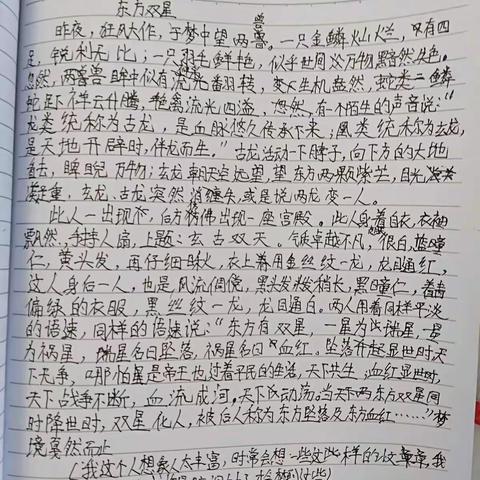 东方双星
昨夜，狂风大作，于梦中望两兽。一只金鳞灿烂，只有四
足，锐利无比；一只羽毛鲜艳，似乎世间万物黯然失色。
忽然，两兽眸中似有流光翻转，变大生机盎然，蛇类二鳞
蛇足下祥云升腾，艳禽流光四溢，忽然，有个陌生的声音说："
龙类统称为古龙，是血脉悠久传承下来；凤类统称为玄龙，
是天地开辟时，伴龙而生。"古龙活动一下脖子，向下方的大地
看去，睥睨万物；玄龙朝天空远望，望东方两颗紫芒，目光
凝重，玄龙、古龙突然消缠失，或是说两龙变一人。
此人一出现，后方仿佛出现一座宫殿。此人身着白衣，衣袖
飘然，手持人扇，上题：玄古双天。气质卓越不凡，很白，蓝瞳
仁，黄头发，再仔细瞅，衣上着用金丝纹一龙，龙目通红，
这人身后一人，也是风流倜傥，黑头发梢长，黑瞳仁，着
偏绿的衣服，黑丝纹一龙，龙目通白。两人用着同样平淡
的倍速，同样的倍速说："东方有双星，一星为迷星，一星
为祸星，星名曰坠落，祸星名曰血红。坠落升起显世时天
下无争，哪怕是帝王也过着平民的生活，天下共生，血红显世时，
天下战争不断，血流成河，天下动荡。当天下两东方双星同
时降世时，双星化人，被后人称为东方坠落及东方血红……"梦
境戛然而止
（我这个人想象太丰富，时常会想一些这些样的文章，我